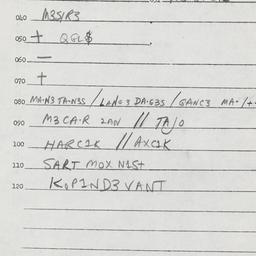 040 M3SIR3
050 + QGL$
060 —
070 +
080 MA·N3 TA·N3S / LANG3 DA·G3S / GANC3 MA·/+·
090 M3CA·R 2AN // TA/O
100 HARC1K // AXC1K
110 SART MOX N1S+
120 KOP1ND3 VANT